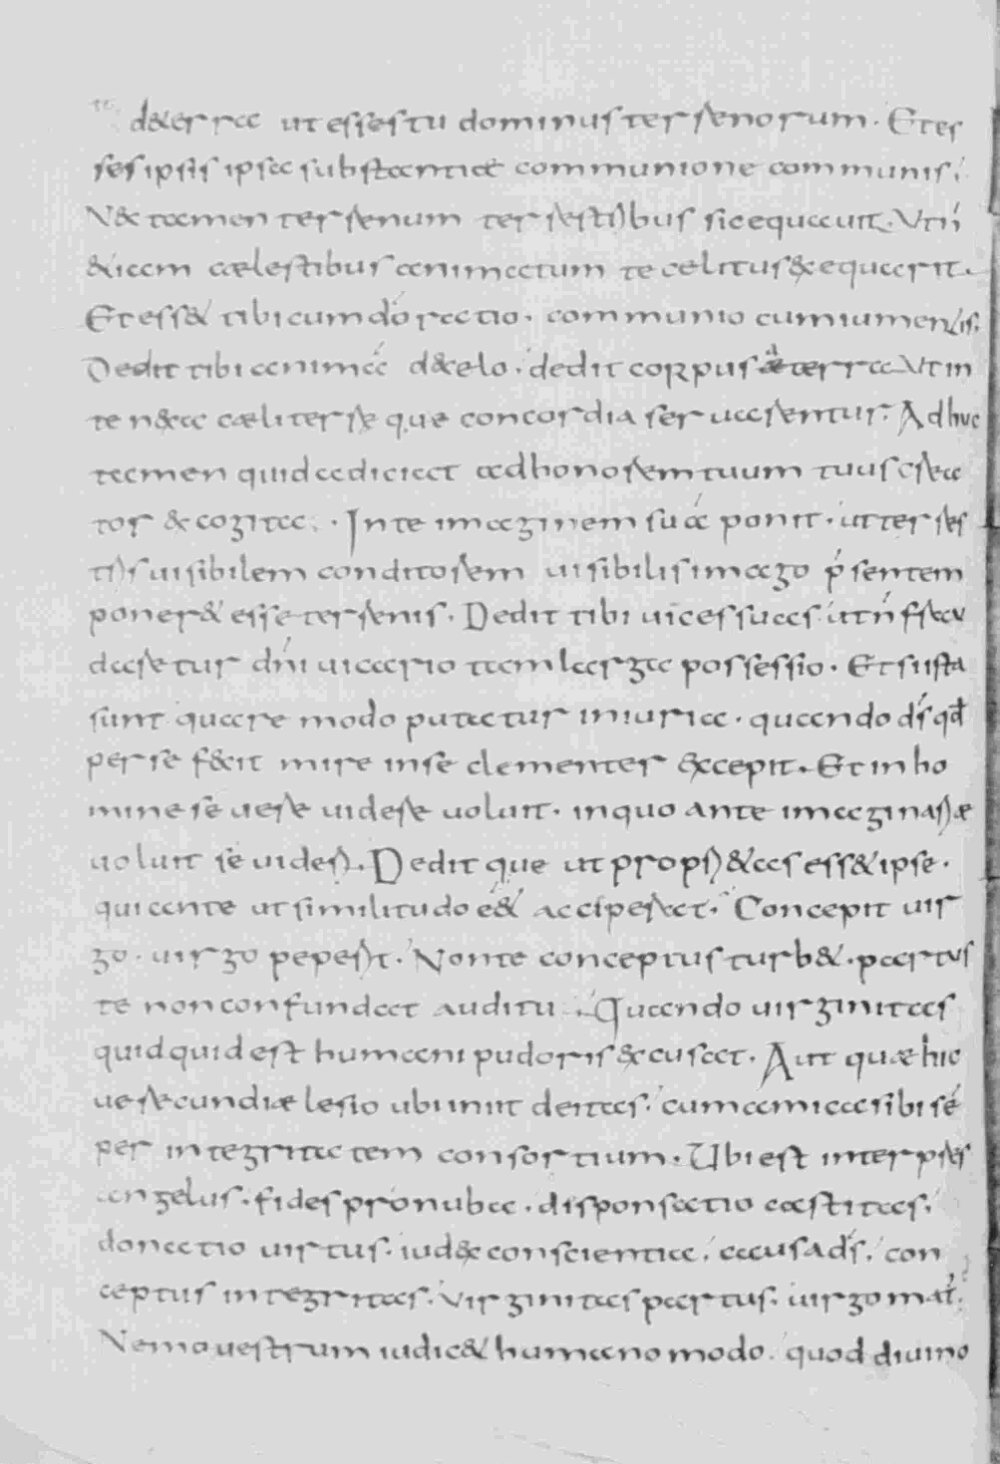 d&erra ut esses tu dominus terrenorum. Et es
ses ipsis ipsa substantiae communione communis;
N& tamen terrenum terrestribus sic equauit. Vt n̄
&iam caelestibus animatum te celitus &equarit.
Et ess& tibi cum dō ratio. communio cum iumentis;
Dedit tibi animā d&celo. dedit corpus &terra. Vt in
te n&a caeli terreque concordia seruarentur. Adhuc
tamen quid adiciat ad honorem tuum tuus crea
tor &cogita;. In te imaginem suā ponit. ut terres
tris uisibilem conditorem uisibilis imago p̄sentem
poner& esse terrenis. Dedit tibi uices suas ut n̄ frau
daretur dn̄i uicario tam larga possessio. Et si ista
sunt quare modo putatur iniuria. quando ds̄ qd̄
per se fecit mire in se clementer excepit. Et in ho
mine se uere uidere uoluit. in quo ante imaginariae
uoluit se uideri. Dedit que ut propri&as ess& ipse.
qui ante ut similitudo e& acciperet. Concepit uir
go. uirgo peperit. Non te conceptus turb&. partus
te non confundat auditu. Quando uirginitas
quidquid est humani pudoris &cusat. Aut quae hic
uerecundiae lesio ubi init deitas. cum amica sibi sē
per integritatem consortium. Ubi est interpres
angelus. fides pronuba. disponsatio castitas.
donatio uirtus. iudex conscientia. causa ds̄. con
ceptus integritas. Virginitas partus. uirgo mat̄.
Nemo uestrum iudic& humano modo. quod diuino